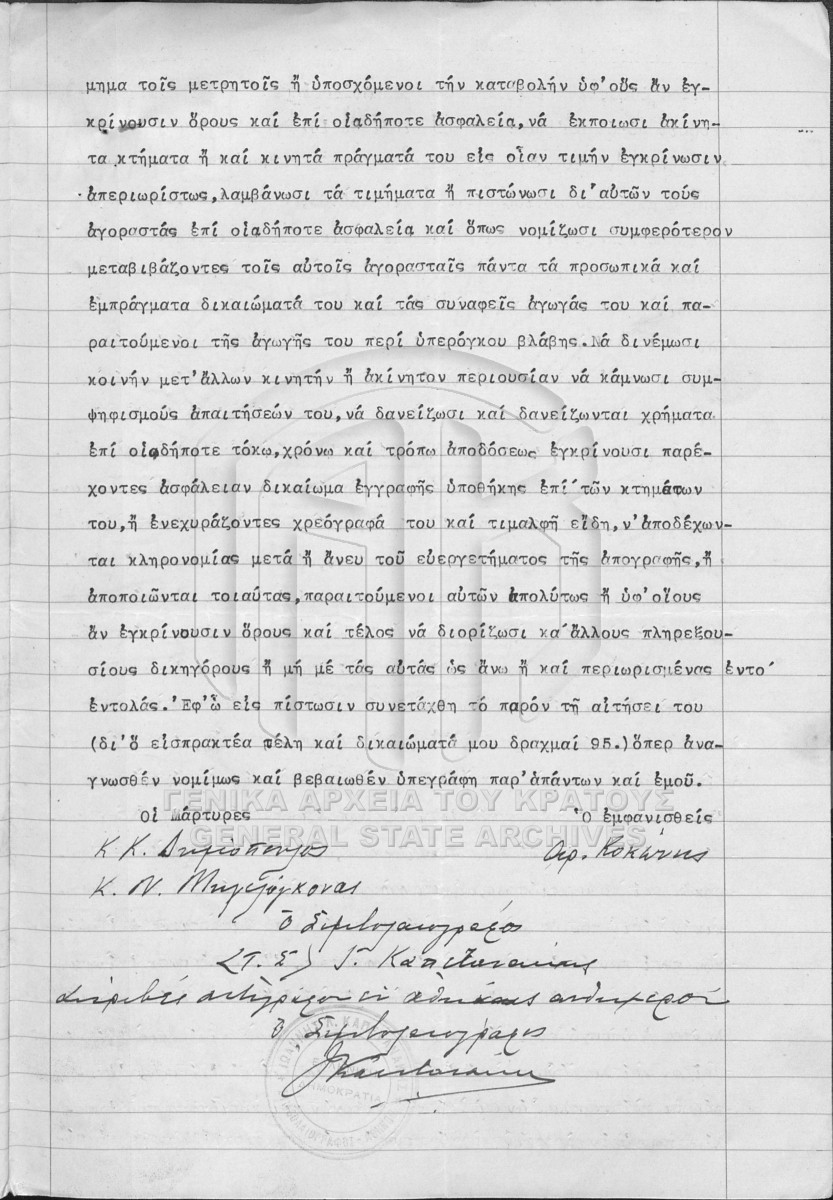 μημα τοῖς μετρητοῖς ἤ ὑποσχόμενοι τήν καταβολήν ὑφ'οὕς ἄν ἐγ-
κρίνουσιν ὅρους καί ἐπί οἱαδήποτε ἀσφαλεία,νά ἐκποιωσι ἀκίνη-
τα κτήματα ἤ καί κινητά πράγματά του εἰς οἵαν τιμήν ἐγκρίνωσιν
ἀπεριωρίστως,λαμβάνωσι τά τιμήματα ἤ πιστώνωσι δι'αὐτῶν τούς
ἀγοραστάς ἐπί οἱαδήποτε ἀσφαλεία καί ὅπως νομίζωσι συμφερότερον
μεταβιβάζοντες τοῖς αὐτοῖς ἀγορασταῖς πάντα τά προσωπικά καί
ἐμπράγματα δικαιώματά του καί τάς συναφεῖς ἀγωγάς του καί πα-
ραιτούμενοι τῆς ἀγωγῆς του περί ὑπερόγκου βλάβης.Νά δινέμωσι
κοινήν μετ'ἄλλων κινητήν ἤ ἀκίνητον περιουσίαν νά κάμνωσι συμ-
ψηφισμούς ἀπαιτήσεών του,νά δανείζωσι καί δανείζωνται χρήματα
ἐπί οἱαδήποτε τόκω,χρόνω καί τρόπω ἀποδόσεως ἐγκρίνουσι παρέ-
χοντες ἀσφάλειαν δικαίωμα ἐγγραφῆς ὑποθήκης ἐπί τῶν κτημάτων
του,ἤ ἐνεχυράζοντες χρεόγραφά του καί τιμαλφῆ εἴδη,ν'ἀποδέχων-
ται κληρονομίας μετά ἤ ἄνευ τοῦ εὐεργετήματος τῆς ἀπογραφῆς,ἤ
ἀποποιῶνται τοιαύτας,παραιτούμενοι αὐτῶν ἀπολύτως ἤ ὑφ'οἵους
ἄν ἐγκρίνουσιν ὅρους καί τέλος νά διορίζωσι κα'ἄλλους πληρεξου-
σίους δικηγόρους ἤ μή μέ τάς αὐτάς ὡς ἄνω ἤ καί περιωρισμένας ἐντο'
ἐντολάς.'Εφ'ὦ εἰς πίστωσιν συνετάχθη τό παρόν τῆ αἰτήσει του
(δι'ὅ εἰσπρακτέα τέλη καί δικαιώματά μου δραχμαί 95.)ὅπερ ἀνα-
γνωσθέν νομίμως καί βεβαιωθέν ὑπεγράφη παρ'ἁπάντων καί ἐμοῦ.
ΓΕΝΙΚΑ ΑΡΧΕΙΑ ΤΟΥ ΚΡΑΤΟΥΣ
Οἱ μάρτυρες Ὁ ἐμφανισθείς
GENERAL STATE ARCHIVES
Κ Κ. Δημόπουλος Αρ. Κοκώνης
Κ. Ν.
Ὁ Συμβολαιογράφος
(Τ.Σ) Ι. Καπετανάκης
Ἀκριβές ἀντίγραφον ἐν Ἀθήναις αὐθημερόν
Ὁ Συμβολαιογράφος
ΔΗΜΟΚΡΑΤΙΑ